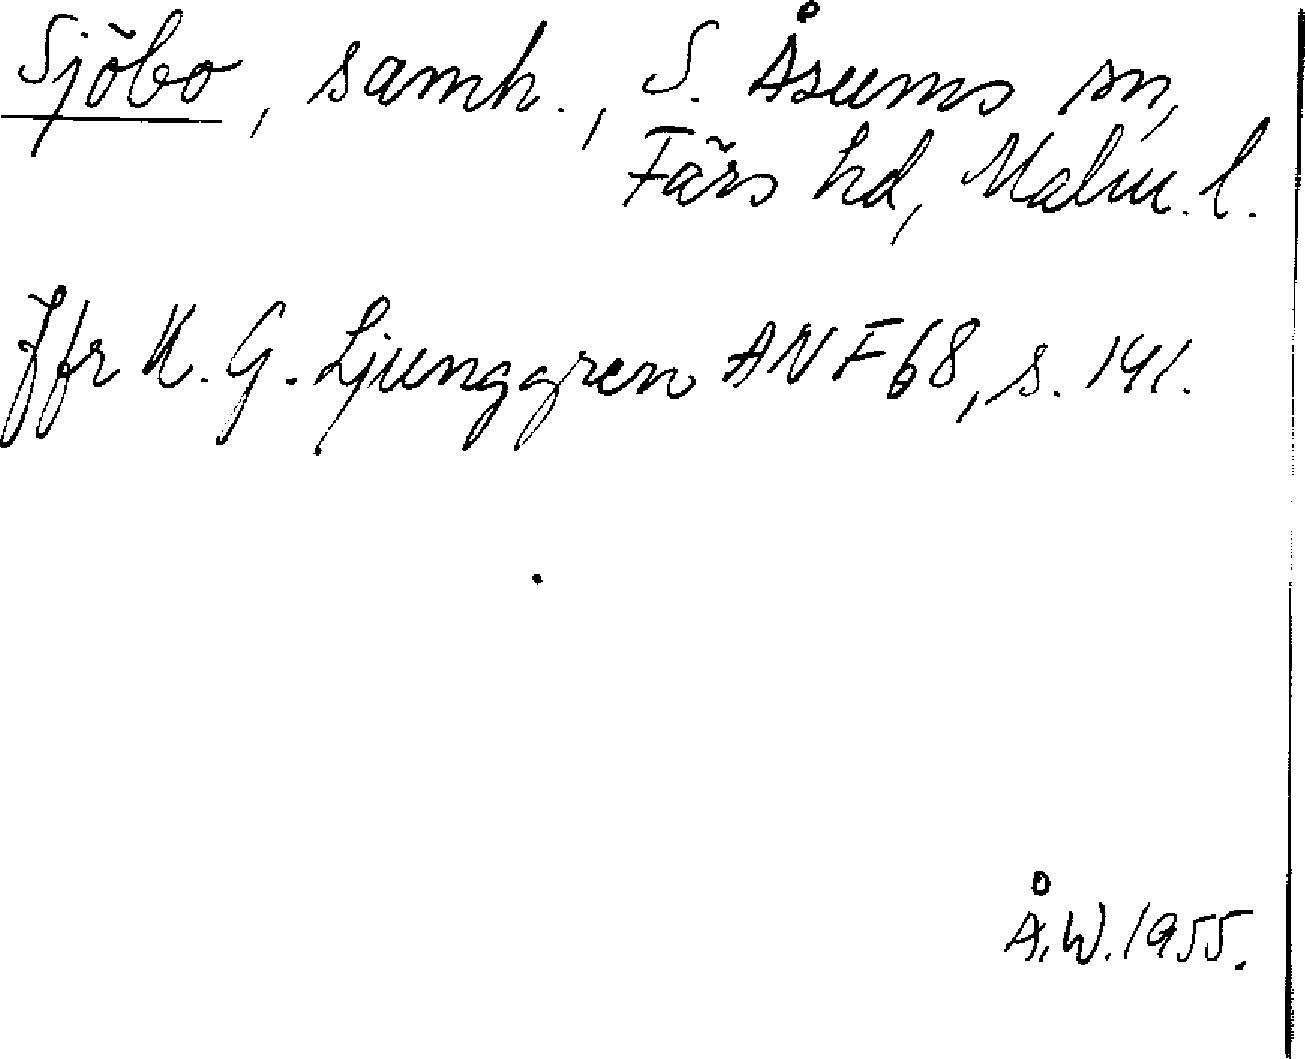 Sjöbo, samh., S. Åsums sn,
Färs hd, Malm. l.
Jfr K. G. Ljunggren ANF 68, s. 141.
Å.W. 1955.